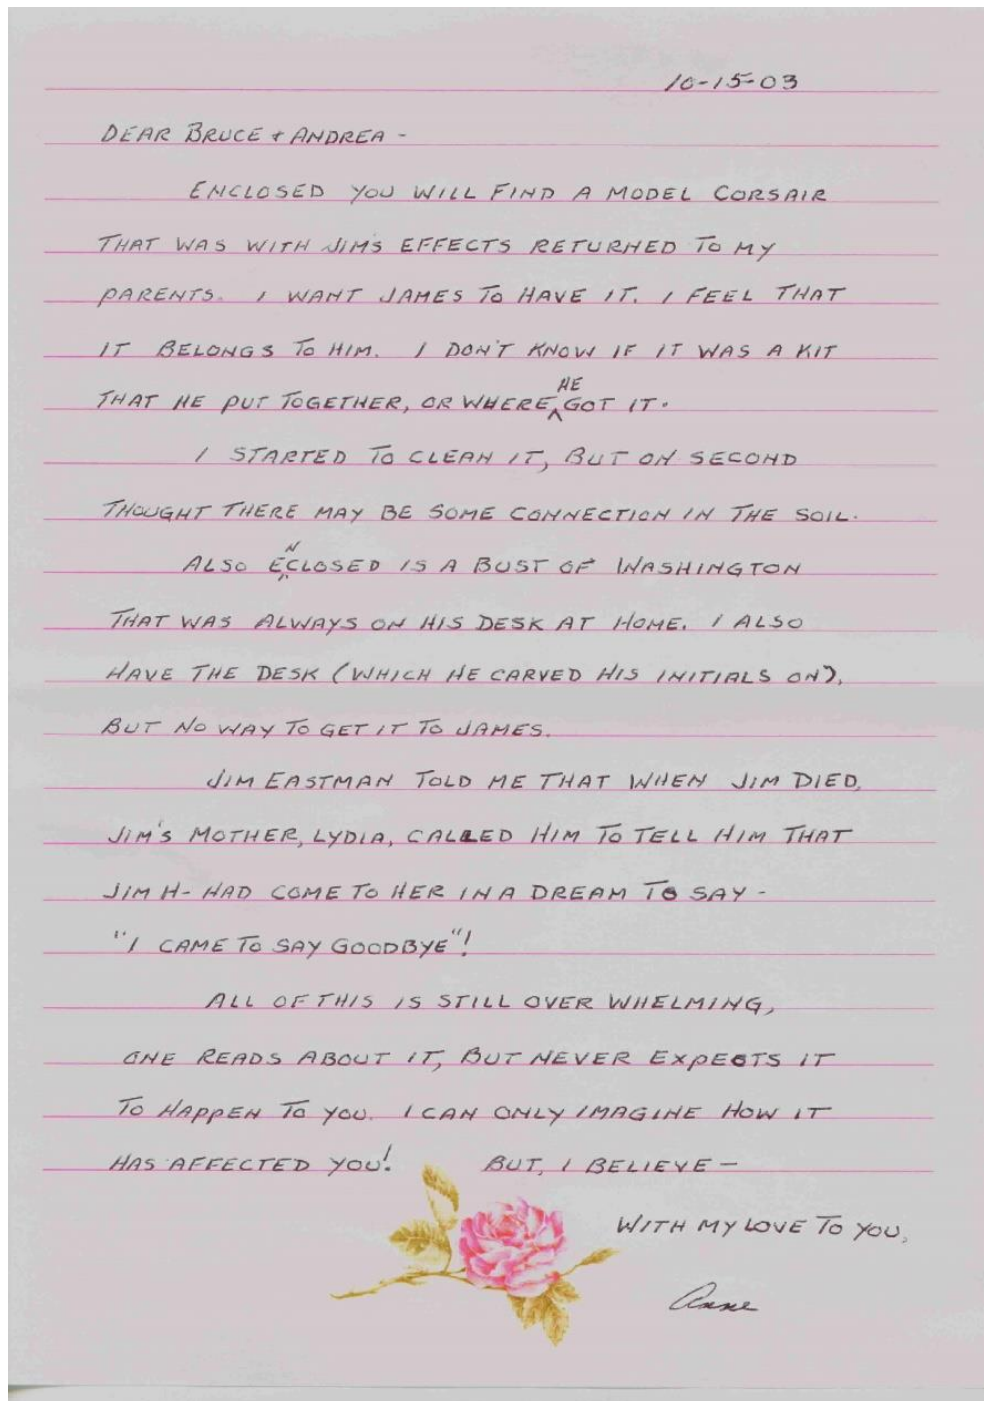 10-15-03
DEAR BRUCE + ANDREA -
ENCLOSED YOU WILL FIND A MODEL CORSAIR
THAT WAS WITH JIM'S EFFECTS RETURNED TO MY
PARENTS. I WANT JAMES TO HAVE IT. I FEEL THAT
IT BELONGS TO HIM. I DON'T KNOW IF IT WAS A KIT
THAT HE PUT TOGETHER, OR WHERE HE GOT IT.
I STARTED TO CLEAN IT, BUT ON SECOND
THOUGHT THERE MAY BE SOME CONNECTION IN THE SOIL.
ALSO ENCLOSED IS A BUST OF WASHINGTON
THAT WAS ALWAYS ON HIS DESK AT HOME. I ALSO
HAVE THE DESK (WHICH HE CARVED HIS INITIALS ON),
BUT NO WAY TO GET IT TO JAMES.
JIM EASTMAN TOLD ME THAT WHEN JIM DIED,
JIM'S MOTHER, LYDIA, CALLED HIM TO TELL HIM THAT
JIM H- HAD COME TO HER IN A DREAM TO SAY -
"I CAME TO SAY GOODBYE"!
ALL OF THIS IS STILL OVER WHELMING,
ONE READS ABOUT IT, BUT NEVER EXPECTS IT
TO HAPPEN TO YOU. I CAN ONLY IMAGINE HOW IT
HAS AFFECTED YOU! BUT, I BELIEVE -
WITH MY LOVE TO YOU,
Anne